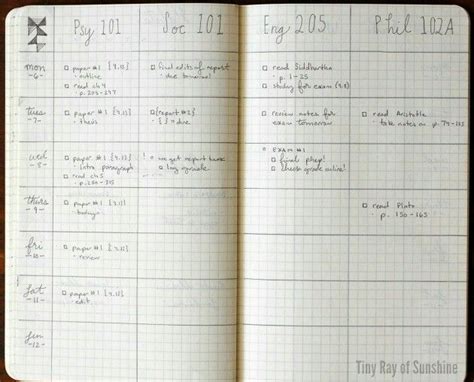 Psy 101
Soc 101
Eng 205
Phil 102A
mon
-6-
paper #1 [9.13]
· outline
read ch 4
· p. 205-237
final edits of report
read Siddhartha
· p. 1-25
study for exam (9.8)
tues
-7-
paper #1 [9.13]
[report #1]
due
review notes for
exam tomorrow
read Aristotle
take notes on p. 79-
wed
-8-
paper #1 [9.13]
· intro paragraph
read ch 5
we get report back
EXAM #1
final prep!
grade online!
thurs
-9-
paper #1 [9.13]
read Plato
· p. 150-165
fri
-10-
paper #1 [9.13]
· review
sat
-11-
paper #1 [9.13]
· edit
sun
-12-
Tiny Ray of Sunshine